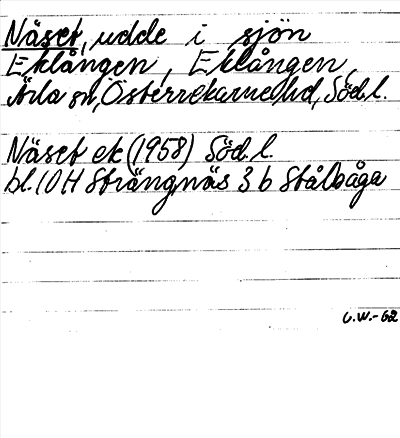 Näset, udde i sjön
Eklången, Eklången,
Ärla sn, Österrekarne hd, Söd. l.
Näset ek (1958) Söd. l.
bl. 10 H Strängnäs 3 b Stålboga
C.W.-62